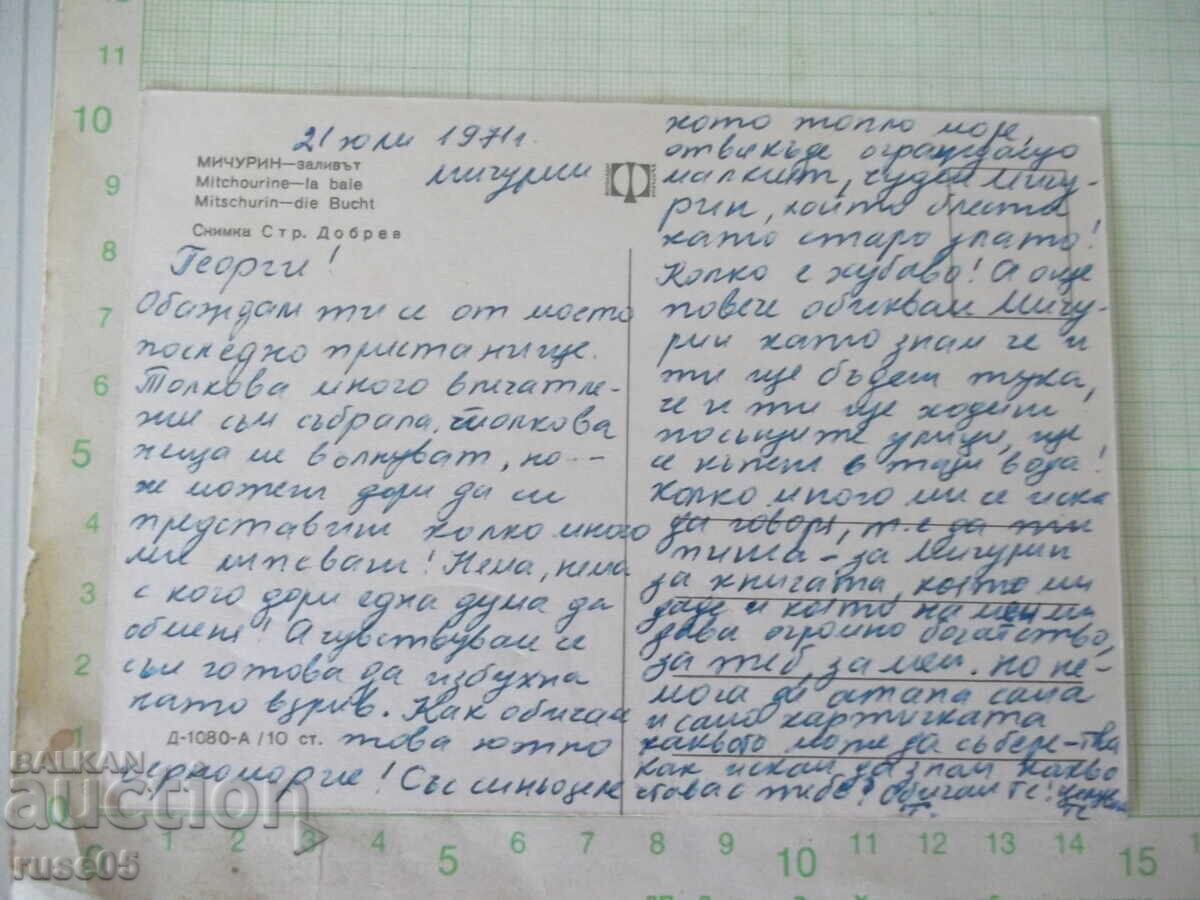 21 юли 1971 г.
Мичурин
МИЧУРИН—заливът
Mitchourine—la baie
Mitschurin—die Bucht
Снимка Стр. Добрев
Георги!
Обаждам ти се от моето
последно пристанище.
Толкова много впечатле-
ния съм събрала, толкова
неща ме вълнуват, но
не можеш дори да си
представиш колко много
ми липсваш! Няма, няма
с кого дори една дума да
обменя! А чувствувам се
съм готова да избухна
като взрив. Как обичам
Д-1080-А/10 ст.
това южно
черноморие! Със синьозеле
ното топло море,
отвсякъде ограждащо
малкият, чуден Мичу-
рин, който блести
като старо злато!
Колко е хубаво! А още
повече обиквам Мичу-
рин като знам че и
ти ще бъдеш тука,
че и ти ще ходиш
по същите улици, ще
се къпеш в тази вода!
Колко много ми се иска
да говоря, т.е да ти
пиша – за Мичурин
за книгата, която ми
даде и която на мен ми
дава огромно богатство,
за теб, за мен. но не-
мога да
и само картичката
може да събере
Как искам да знам какво
става с тебе! Обичам те!
BALKAN
Auction
ruse05
11
10
9
8
7
6
5
4
3
2
1
0
0
3
4
5
6
7
8
9
10
11
12
13
14
15